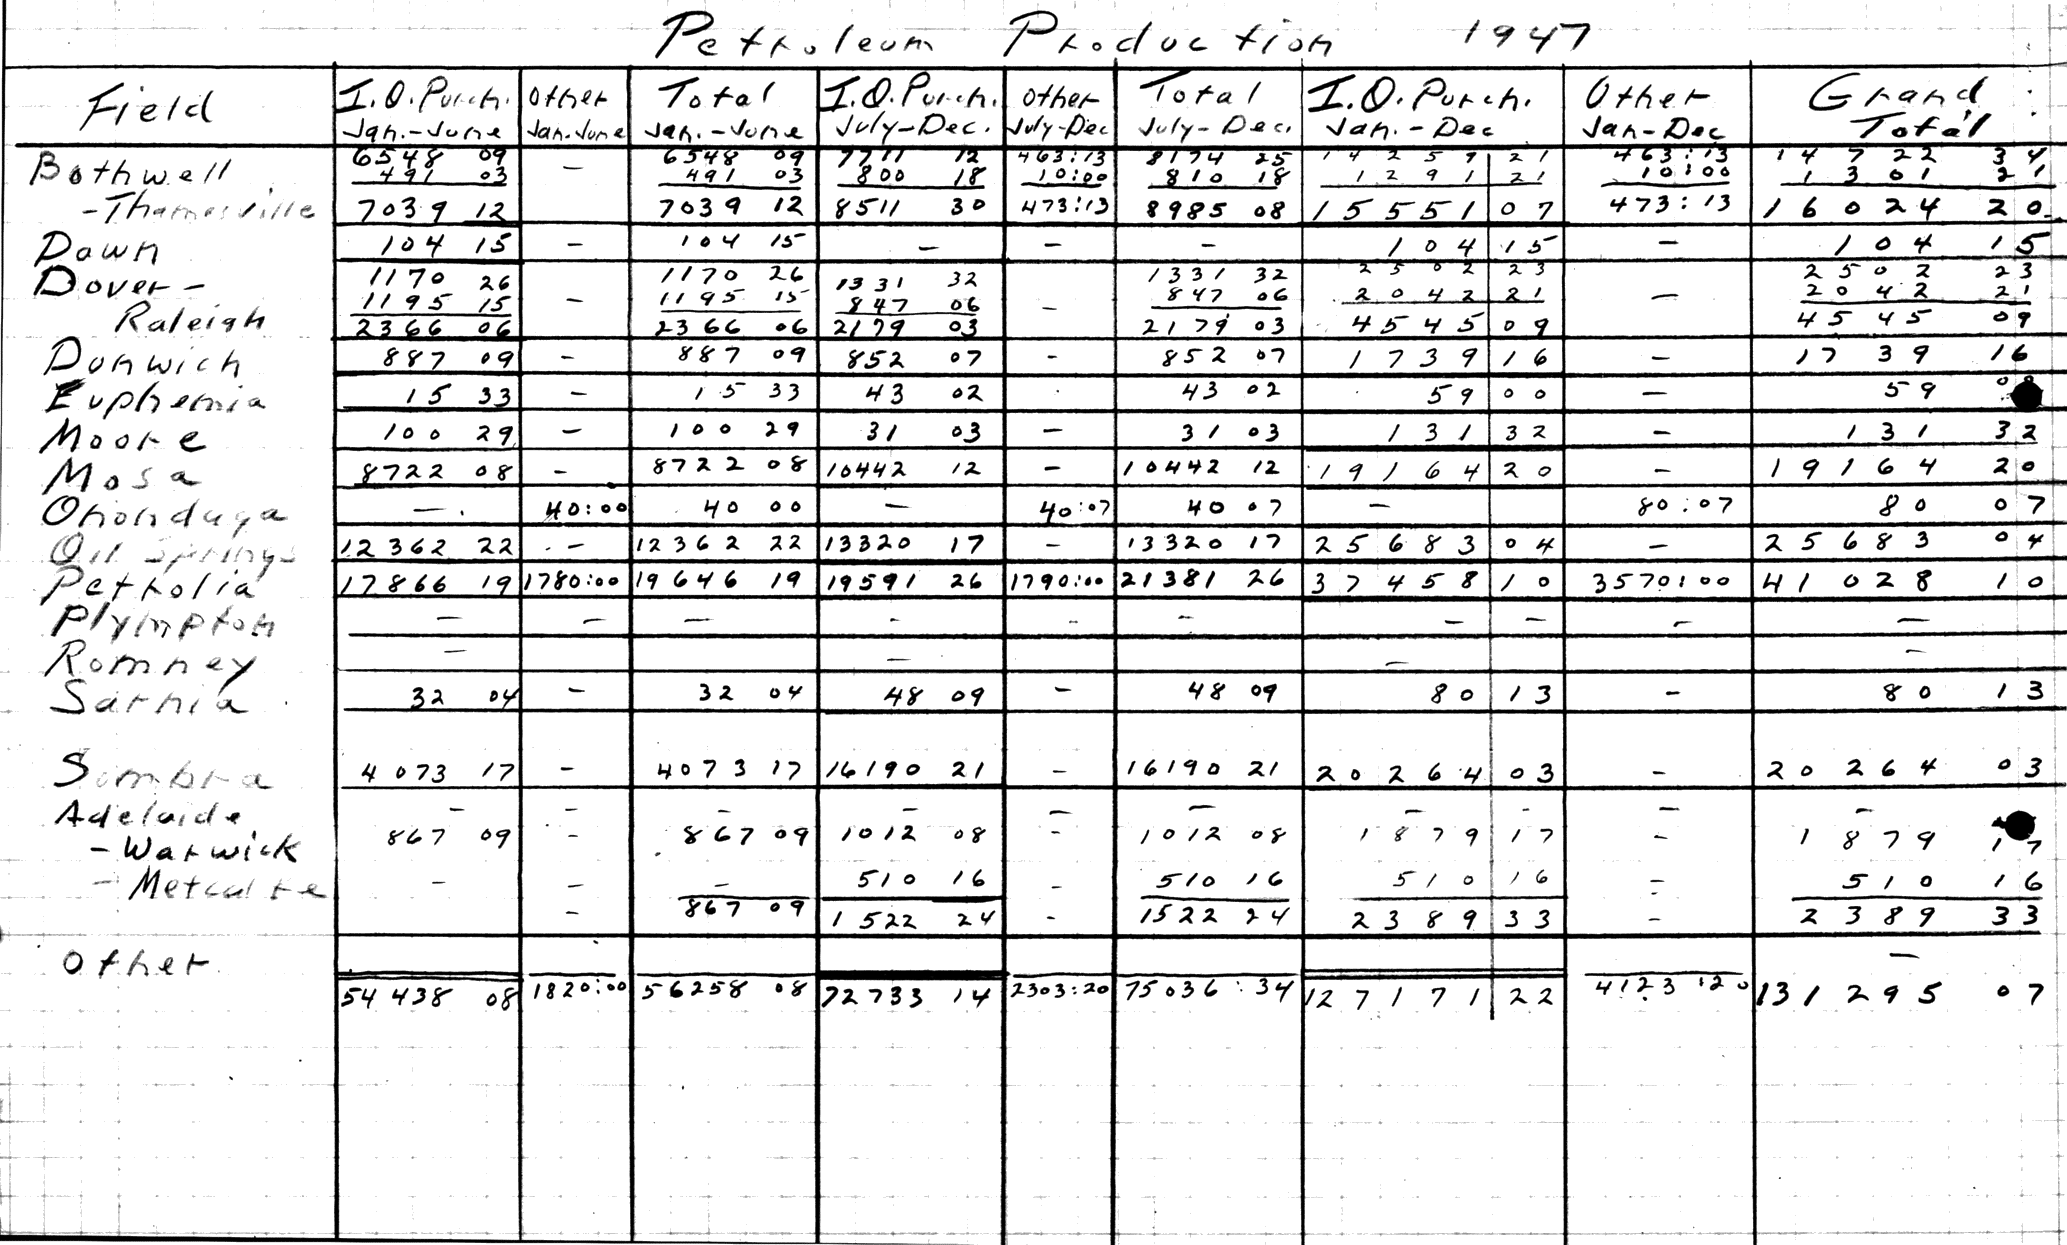 Petroleum Production 1947
Field I.O.Purch. Jan.-June Other Jan.June Total Jan.-June I.O.Purch. July-Dec. Other July-Dec Total July-Dec. I.O.Purch. Jan.-Dec Other Jan-Dec Grand Total
Bothwell 6548 09 – 6548 09 7711 12 463:13 8174 25 14259 21 463:13 14722 34
-Thamesville 491 03 491 03 800 18 10:00 810 18 1291 21 10:00 1301 21
7039 12 7039 12 8511 30 473:13 8985 08 15551 07 473:13 16024 20
Dawn 104 15 – 104 15 – – – 104 15 – 104 15
Dover- 1170 26 1170 26 1331 32 1331 32 2502 23 2502 23
Raleigh 1195 15 – 1195 15 847 06 – 847 06 2042 21 – 2042 21
2366 06 2366 06 2179 03 2179 03 4545 09 4545 09
Dunwich 887 09 – 887 09 852 07 – 852 07 1739 16 – 1739 16
Euphemia 15 33 – 15 33 43 02 43 02 59 00 – 59
Moore 100 29 – 100 29 31 03 – 31 03 131 32 – 131 32
Mosa 8722 08 – 8722 08 10442 12 – 10442 12 19164 20 – 19164 20
Onondaga – 40:00 40 00 – 40:07 40 07 – 80:07 80 07
Oil Springs 12362 22 – 12362 22 13320 17 – 13320 17 25683 04 – 25683 04
Petrolia 17866 19 1780:00 19646 19 19591 26 1790:00 21381 26 37458 10 3570:00 41028 10
Plympton – – – – – – – – – –
Romney – – – –
Sarnia 32 04 – 32 04 48 09 – 48 09 80 13 – 80 13
Sombra 4073 17 – 4073 17 16190 21 – 16190 21 20264 03 – 20264 03
Adelaide – – – – – – – – – –
-Warwick 867 09 – 867 09 1012 08 – 1012 08 1879 17 – 1879 17
-Metcalfe – – – 510 16 – 510 16 510 16 – 510 16
– 867 09 1522 24 – 1522 24 2389 33 – 2389 33
Other –
54438 08 1820:00 56258 08 72733 14 2303:20 75036:34 127171 22 4123 20 131295 07